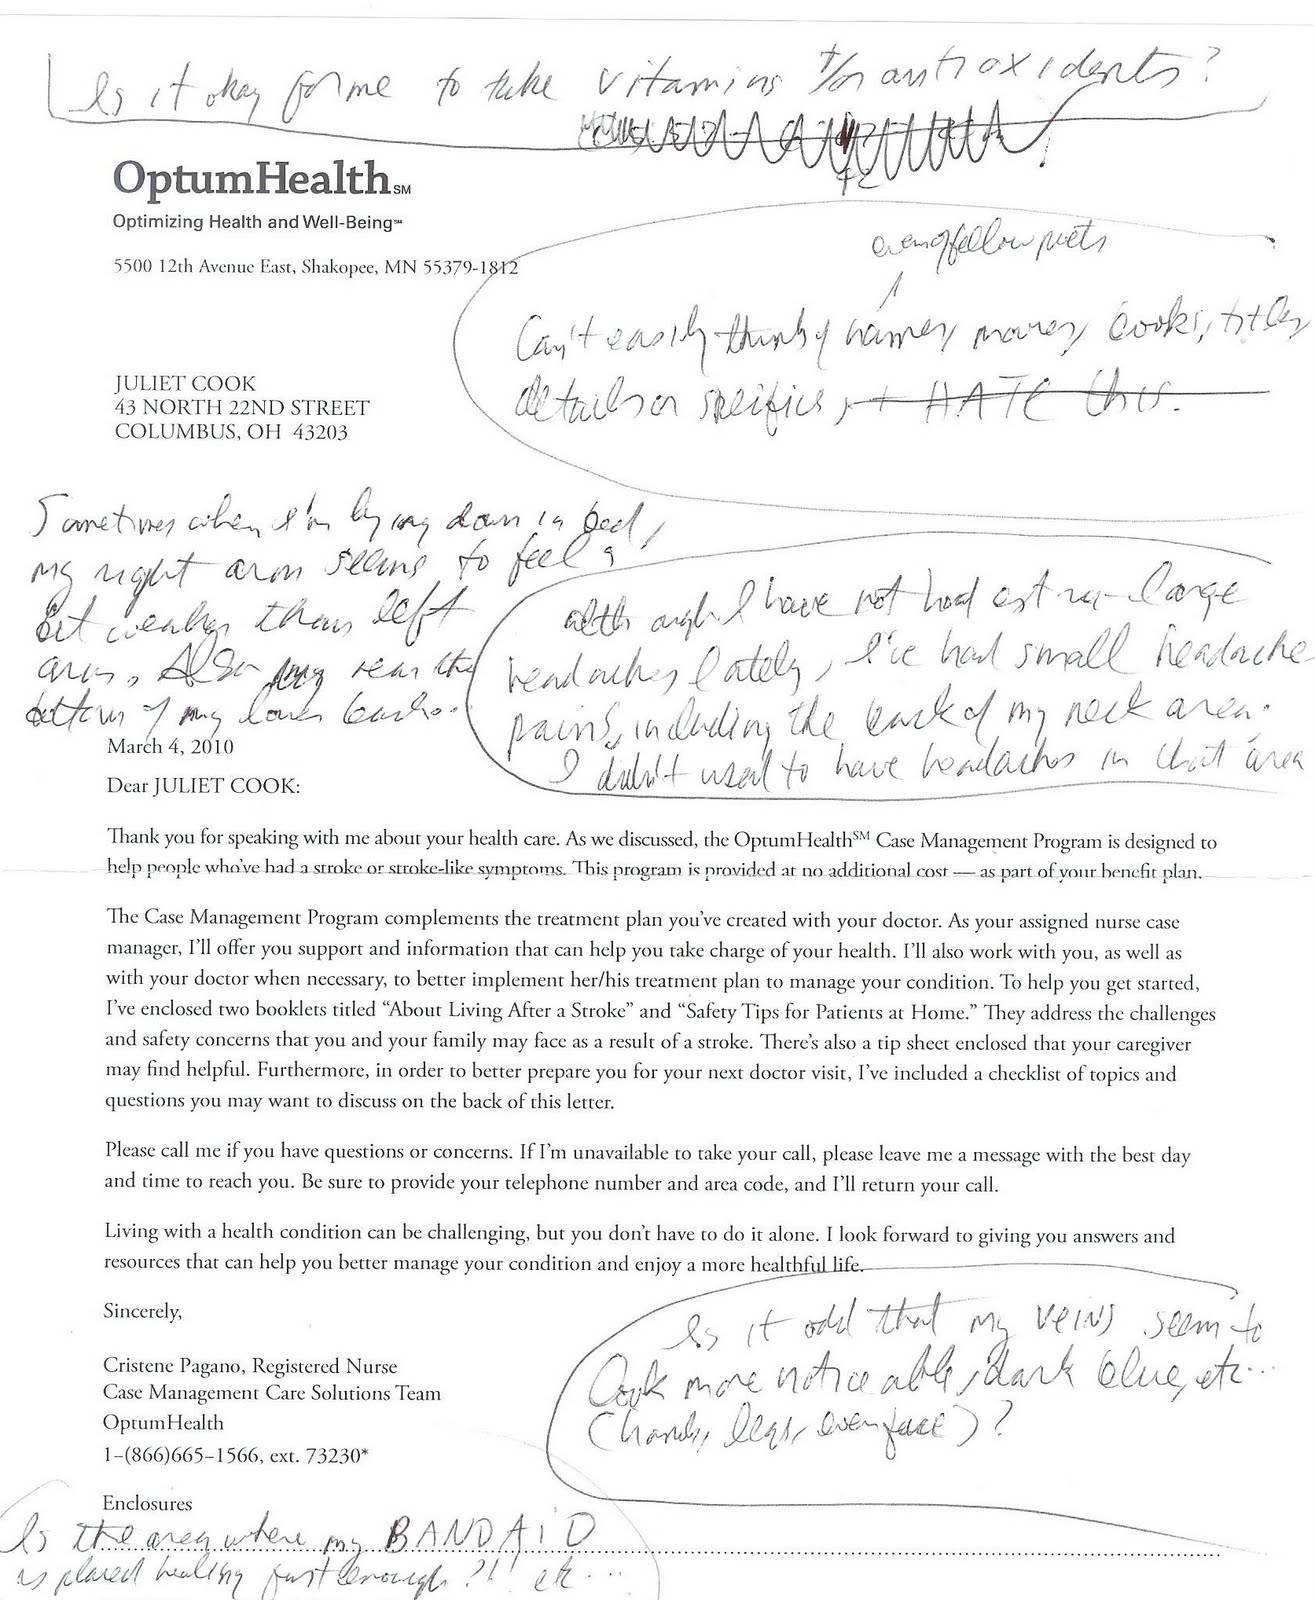 Is it okay for me to take vitamins +/or antioxidents?
OptumHealth SM
Optimizing Health and Well-Being SM
5500 12th Avenue East, Shakopee, MN 55379-1812
even of fellow poets
Can't easily think of names, movies, books, titles,
details or specifics, + HATE this.
JULIET COOK
43 NORTH 22ND STREET
COLUMBUS, OH 43203
Sometimes when I'm lying down in bed,
my right arm seems to feel a
bit weaker than left
arm. Also near the
bottom of my lower back.
although I have not had extra-large
headaches lately, I've had small headache
pains, including the back of my neck area.
I didn't used to have headaches in that area
March 4, 2010
Dear JULIET COOK:
Thank you for speaking with me about your health care. As we discussed, the OptumHealth SM Case Management Program is designed to
help people who've had a stroke or stroke-like symptoms. This program is provided at no additional cost — as part of your benefit plan.
The Case Management Program complements the treatment plan you've created with your doctor. As your assigned nurse case
manager, I'll offer you support and information that can help you take charge of your health. I'll also work with you, as well as
with your doctor when necessary, to better implement her/his treatment plan to manage your condition. To help you get started,
I've enclosed two booklets titled “About Living After a Stroke” and “Safety Tips for Patients at Home.” They address the challenges
and safety concerns that you and your family may face as a result of a stroke. There's also a tip sheet enclosed that your caregiver
may find helpful. Furthermore, in order to better prepare you for your next doctor visit, I've included a checklist of topics and
questions you may want to discuss on the back of this letter.
Please call me if you have questions or concerns. If I'm unavailable to take your call, please leave me a message with the best day
and time to reach you. Be sure to provide your telephone number and area code, and I'll return your call.
Living with a health condition can be challenging, but you don't have to do it alone. I look forward to giving you answers and
resources that can help you better manage your condition and enjoy a more healthful life.
Sincerely,
Is it odd that my veins seem to
look more noticeable, dark blue, etc...
(hands, legs, even face)?
Cristene Pagano, Registered Nurse
Case Management Care Solutions Team
OptumHealth
1-(866)665-1566, ext. 73230*
Enclosures
Is the area where my BANDAiD
is placed healing fast enough?!! etc...